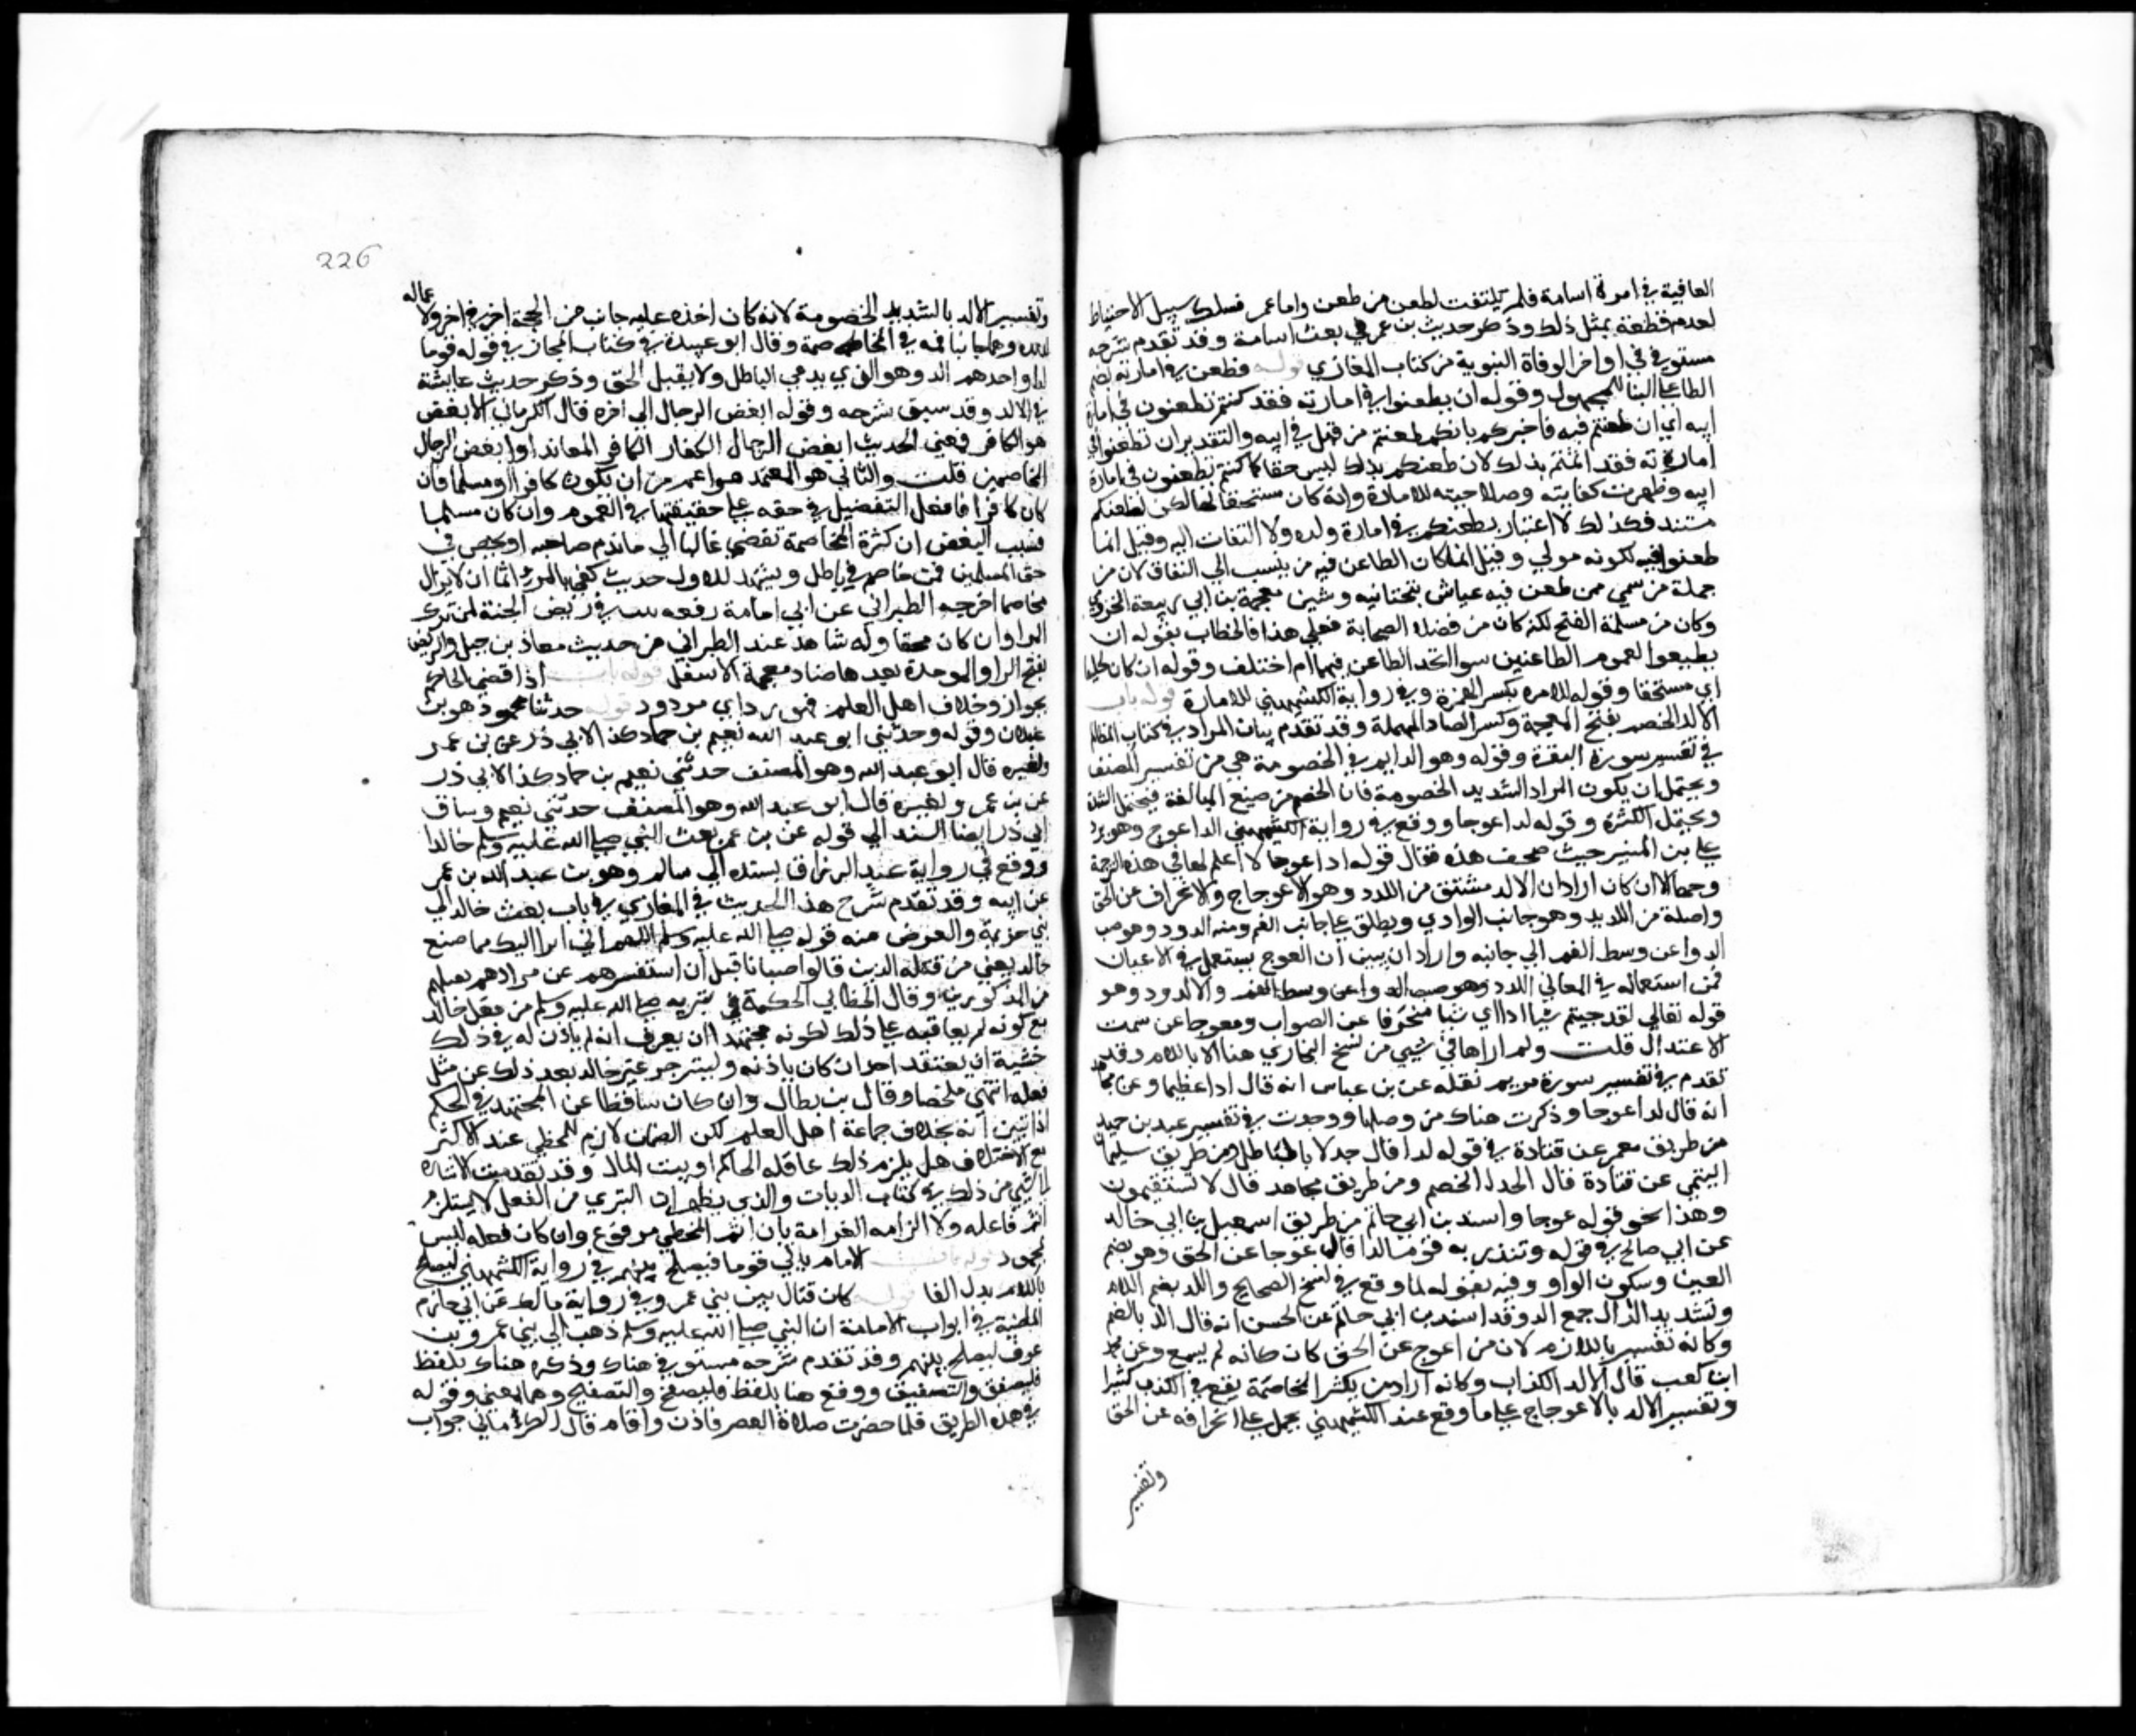 العاقبة في امرة اسامة فلم يلتفت لطعن من طعن واما عمر فسلك سبيل الاحتياط
لعدم قطعه بمثل ذلك وذكر حديث بن عمر في بعث اسامة وقد تقدم شرحه
مستوفي في اواخر الوفاة النبوية من كتاب المغازي قوله فطعن في امارته بضم
الطا على البنا للمجهول وقوله ان يطعنوا في امارته فقد كنتم تطعنون في امارة
ابيه اي ان طعنتم فيه فاخبركم بانكم طعنتم من قبل في ابيه والتقدير ان تطعنوا في
امارته فقد اثمتم بذلك لان طعنكم بذلك ليس حقا كما كنتم تطعنون في امارة
ابيه وظهرت كفايته وصلاحيته للامارة وانه كان مستحقا لها لكن لطعنكم
مستند فكذلك لا اعتبار بطعنكم في امارة ولده ولا التفات اليه وقيل انما
طعنوا فيه لكونه مولي وقيل انما كان الطاعن فيه من ينسب الي النفاق لان من
جملة من سمي ممن طعن فيه عياش بتحتانيه وشين معجمة بن ابي ربيعة المخزومي
وكان من مسلمة الفتح لكنه كان من فضلاء الصحابة فعلي هذا فالخطاب بقوله ان
يطيعوا لعموم الطاعنين سوا اتحد الطاعن فيهما ام اختلف وقوله ان كان لخليقا
اي مستحقا وقوله للامره بكسر الهمزة وفي رواية الكشميهني للامارة قوله باب
الالد الخصم بفتح المعجمة وكسر الصاد المهملة وقد تقدم بيان المراد في كتاب المظالم
في تفسير سورة البقرة وقوله وهو الدايم في الخصومة هي من تفسير المصنف
ويحتمل ان يكون المراد الشديد الخصومة فان الخصم من صيغ المبالغة فيحتمل الشدة
ويحتمل الكثرة وقوله لدا عوجا ووقع في رواية الكشميهني الد اعوج وهو يرد
علي بن المنير حيث صحف هذه فقال قوله ادا عوجا لا اعلم لها في هذه الترجمة
وجها الا ان كان اراد ان الالد مشتق من اللدد وهو الاعوجاج والانحراف عن الحق
واصلة من اللديد وهو جانب الوادي ويطلق علي جانب الفم ومنه الدود وهو صب
الدوا عن وسط الفم الي جانبه واراد ان يبين ان العوج يستعمل في الاعيان
فمن استعماله في المعاني اللدد وهو صب الدوا عن وسط الفم والالدود وهو
قوله تعالي لقد جيتم شيا ادا اي شيا منحرفا عن الصواب ومعوجا عن سمت
الاعتدال قلت ولم ارها في شيي من نسخ البخاري هنا الا باللام وقد
تقدم في تفسير سورة مريم نقله عن بن عباس انه قال ادا عظيما وعن مجاهد
انه قال لدا عوجا وذكرت هناك من وصلها ووجدت في تفسير عبد بن حميد
من طريق معمر عن قتادة في قوله لدا قال جدلا بالباطل ومن طريق سليمان
التيمي عن قتادة قال الجدل الخصم ومن طريق مجاهد قال لا تستقيمون
وهذا نحو قوله عوجا واسند بن ابي حاتم من طريق اسمعيل بن ابي خالد
عن ابي صالح في قوله وتنذر به قوما لدا قال عوجا عن الحق وهو بضم
العين وسكون الواو وفيه تقوية لما وقع في نسخ الصحيح واللد بضم اللام
وتشديد الدال جمع الد وقد اسند بن ابي حاتم عن الحسن انه قال الد بالضم
وكانه تفسير باللازم لان من اعوج عن الحق كان كانه لم يسمع وعن محمد
ابن كعب قال الالد الكذاب وكانه اراد من يكثر المخاصمة يقع في الكذب كثيرا
وتفسير الالد بالاعوجاج علي ما وقع عند الكشميهني يحمل علي انحرافه عن الحق
وتفسير
226
وتفسير الالد بالشديد الخصومة لانه كان اخذ عليه جانب من الحجة اخر في اخر ولا عماله
لدده وهما جانبا فمه في المخاصمة وقال ابو عبيدة في كتاب المجاز في قوله قوما
لدا واحدهم الد وهو الذي يدعي الباطل ولا يقبل الحق وذكر حديث عايشة
في الالد وقد سبق شرحه وقوله ابغض الرجال الي اخره قال الكرماني الابغض
هو الكافر فمعني الحديث ابغض الرجال الكفار الكافر المعاند او ابغض الرجال
المخاصمين قلت والثاني هو المعتمد هو اعم من ان يكون كافرا او مسلما فان
كان كافرا فافعل التفضيل في حقه علي حقيقتها في العموم وان كان مسلما
فسبب البغض ان كثرة المخاصمة تفضي غالبا الي ما يذم صاحبه او يخص في
حق المسلمين فمن خاصم في باطل ويشهد للاول حديث كفي بالمرء اثما ان لا يزال
مخاصما اخرجه الطبراني عن ابي امامة رفعه بيت في ربض الجنة لمن ترك
المرا وان كان محقا وله شاهد عند الطبراني من حديث معاذ بن جبل والربض
بفتح الرا والموحدة بعدها ضاد معجمة الاسفل قوله باب اذا قضي الحاكم
بجور او خلاف اهل العلم فهو رد اي مردود قوله حدثنا محمود هو بن
غيلان وقوله وحدثني ابو عبد الله نعيم بن حماد كذا لابي ذر عن بن عمر
ولغيره قال ابو عبد الله وهو المصنف حدثني نعيم بن حماد كذا لابي ذر
عن بن عمر ولغيره قال ابو عبد الله وهو المصنف حدثني نعيم وساق
ابي ذر ايضا السند الي قوله عن بن عمر بعث النبي صلي الله عليه وسلم خالدا
ووقع في رواية عبد الرزاق بسنده الي سالم وهو بن عبد الله بن عمر
عن ابيه وقد تقدم شرح هذا الحديث في المغازي في باب بعث خالد الي
بني جزيمة والغرض منه قوله صلي الله عليه وسلم اللهم اني ابرا اليك مما صنع
خالد يعني من قتله الذين قالوا صبانا قبل ان استفسرهم عن مرادهم بعلمهم
من المذكورين وقال الخطابي الحكمة في تبريه صلي الله عليه وسلم من فعل خالد
مع كونه لم يعاقبه علي ذلك لكونه مجتهدا ان يعرف انه لم ياذن له في ذلك
خشية ان يعتقد احد ان كان باذنه ولينزجر غير خالد بعد ذلك عن مثل
فعله انتهي ملخصا وقال بن بطال وان كان ساقطا عن المجتهد في الحكم
اذا تبين انه بخلاف جماعة اهل العلم لكن الضمان لازم للمخطي عند الاكثر
مع الاختلاف هل يلزم ذلك عاقله الحاكم او بيت المال وقد تقدمت الاشارة
الي شيء من ذلك في كتاب الديات والذي يظهر ان التبري من الفعل لا يستلزم
اثم فاعله ولا الزامه الغرامة بان اثم المخطي مرفوع وان كان فعله ليس
بمحمود قوله باب الامام ياتي قوما فيصلح بينهم في رواية الكشميهني ليصلح
باللام بدل الفا قوله كان قتال بين بني عمر وفي رواية مالك عن ابي حازم
الماضية في ابواب الامامة ان النبي صلي الله عليه وسلم ذهب الي بني عمرو بن
عوف ليصلح بينهم وقد تقدم شرحه مستوفي هناك وذكره هناك بلفظ
فليصفق والتصفيق ووقع هنا بلفظ فليصفح والتصفيح وهما بمعني وقوله
في هذه الطريق فلما حضرت صلاة العصر فاذن واقام قال الكرماني جواب